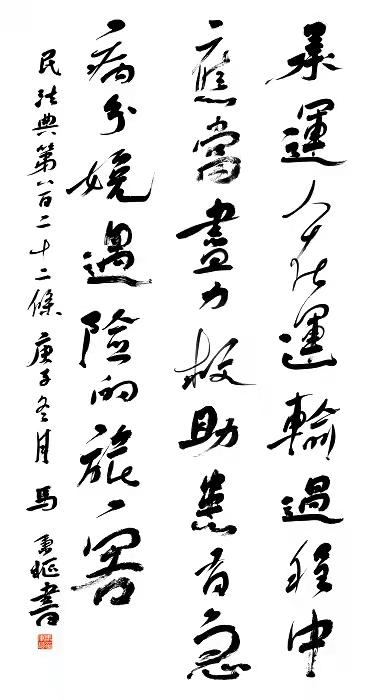 承運人在運輸過程中
應當盡力救助患有急
病分娩遇險的旅客
民法典第八百二十二條 庚子冬月 馬 書